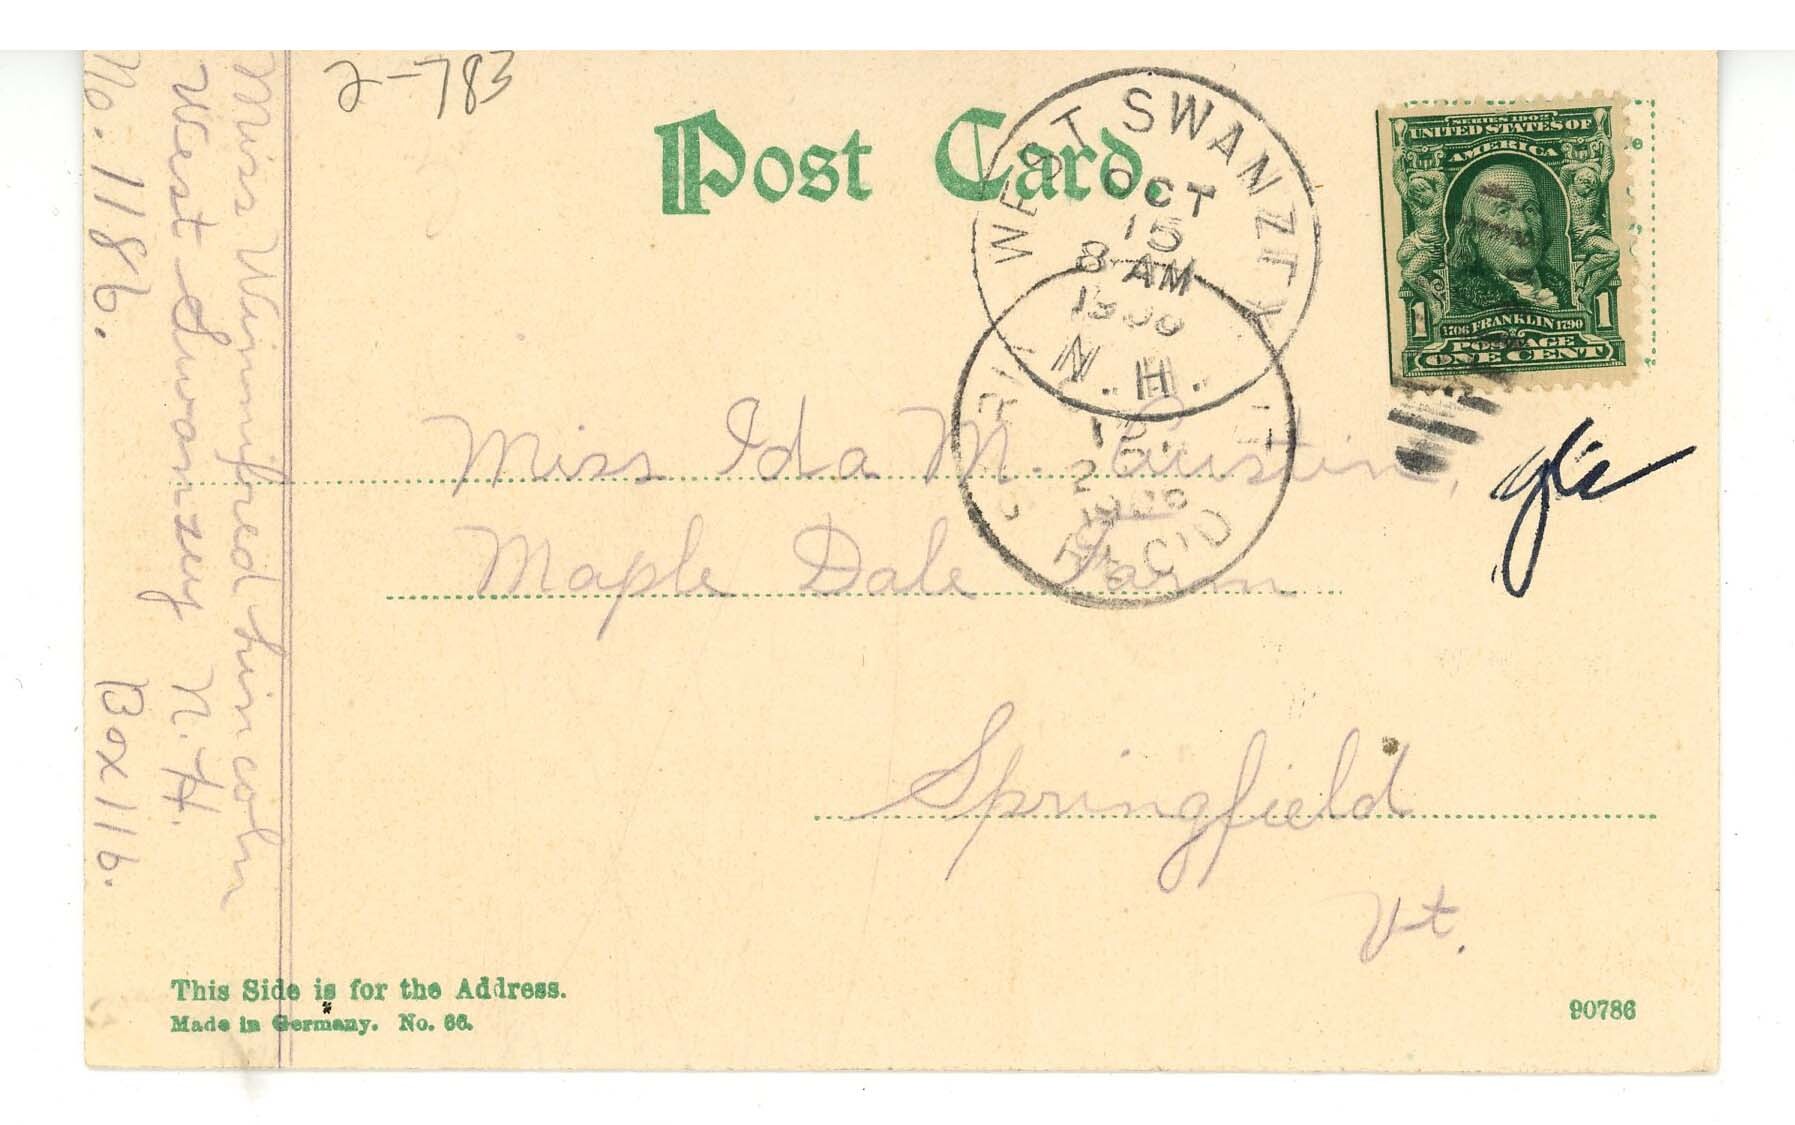 2-783
Post Card.
WEST SWANZEY
OCT
15
8 AM
N.H.
REC'D
SERIES 1902
UNITED STATES OF
AMERICA
1706 FRANKLIN 1790
1 1
POSTAGE
ONE CENT
Miss Ida M. Austin,
Maple Dale Farm
Springfield
Vt.
Miss Winnifred Lincoln
West Swanzey N.H.
No. 1186. Box 116.
This Side is for the Address.
Made in Germany. No. 66.
90786